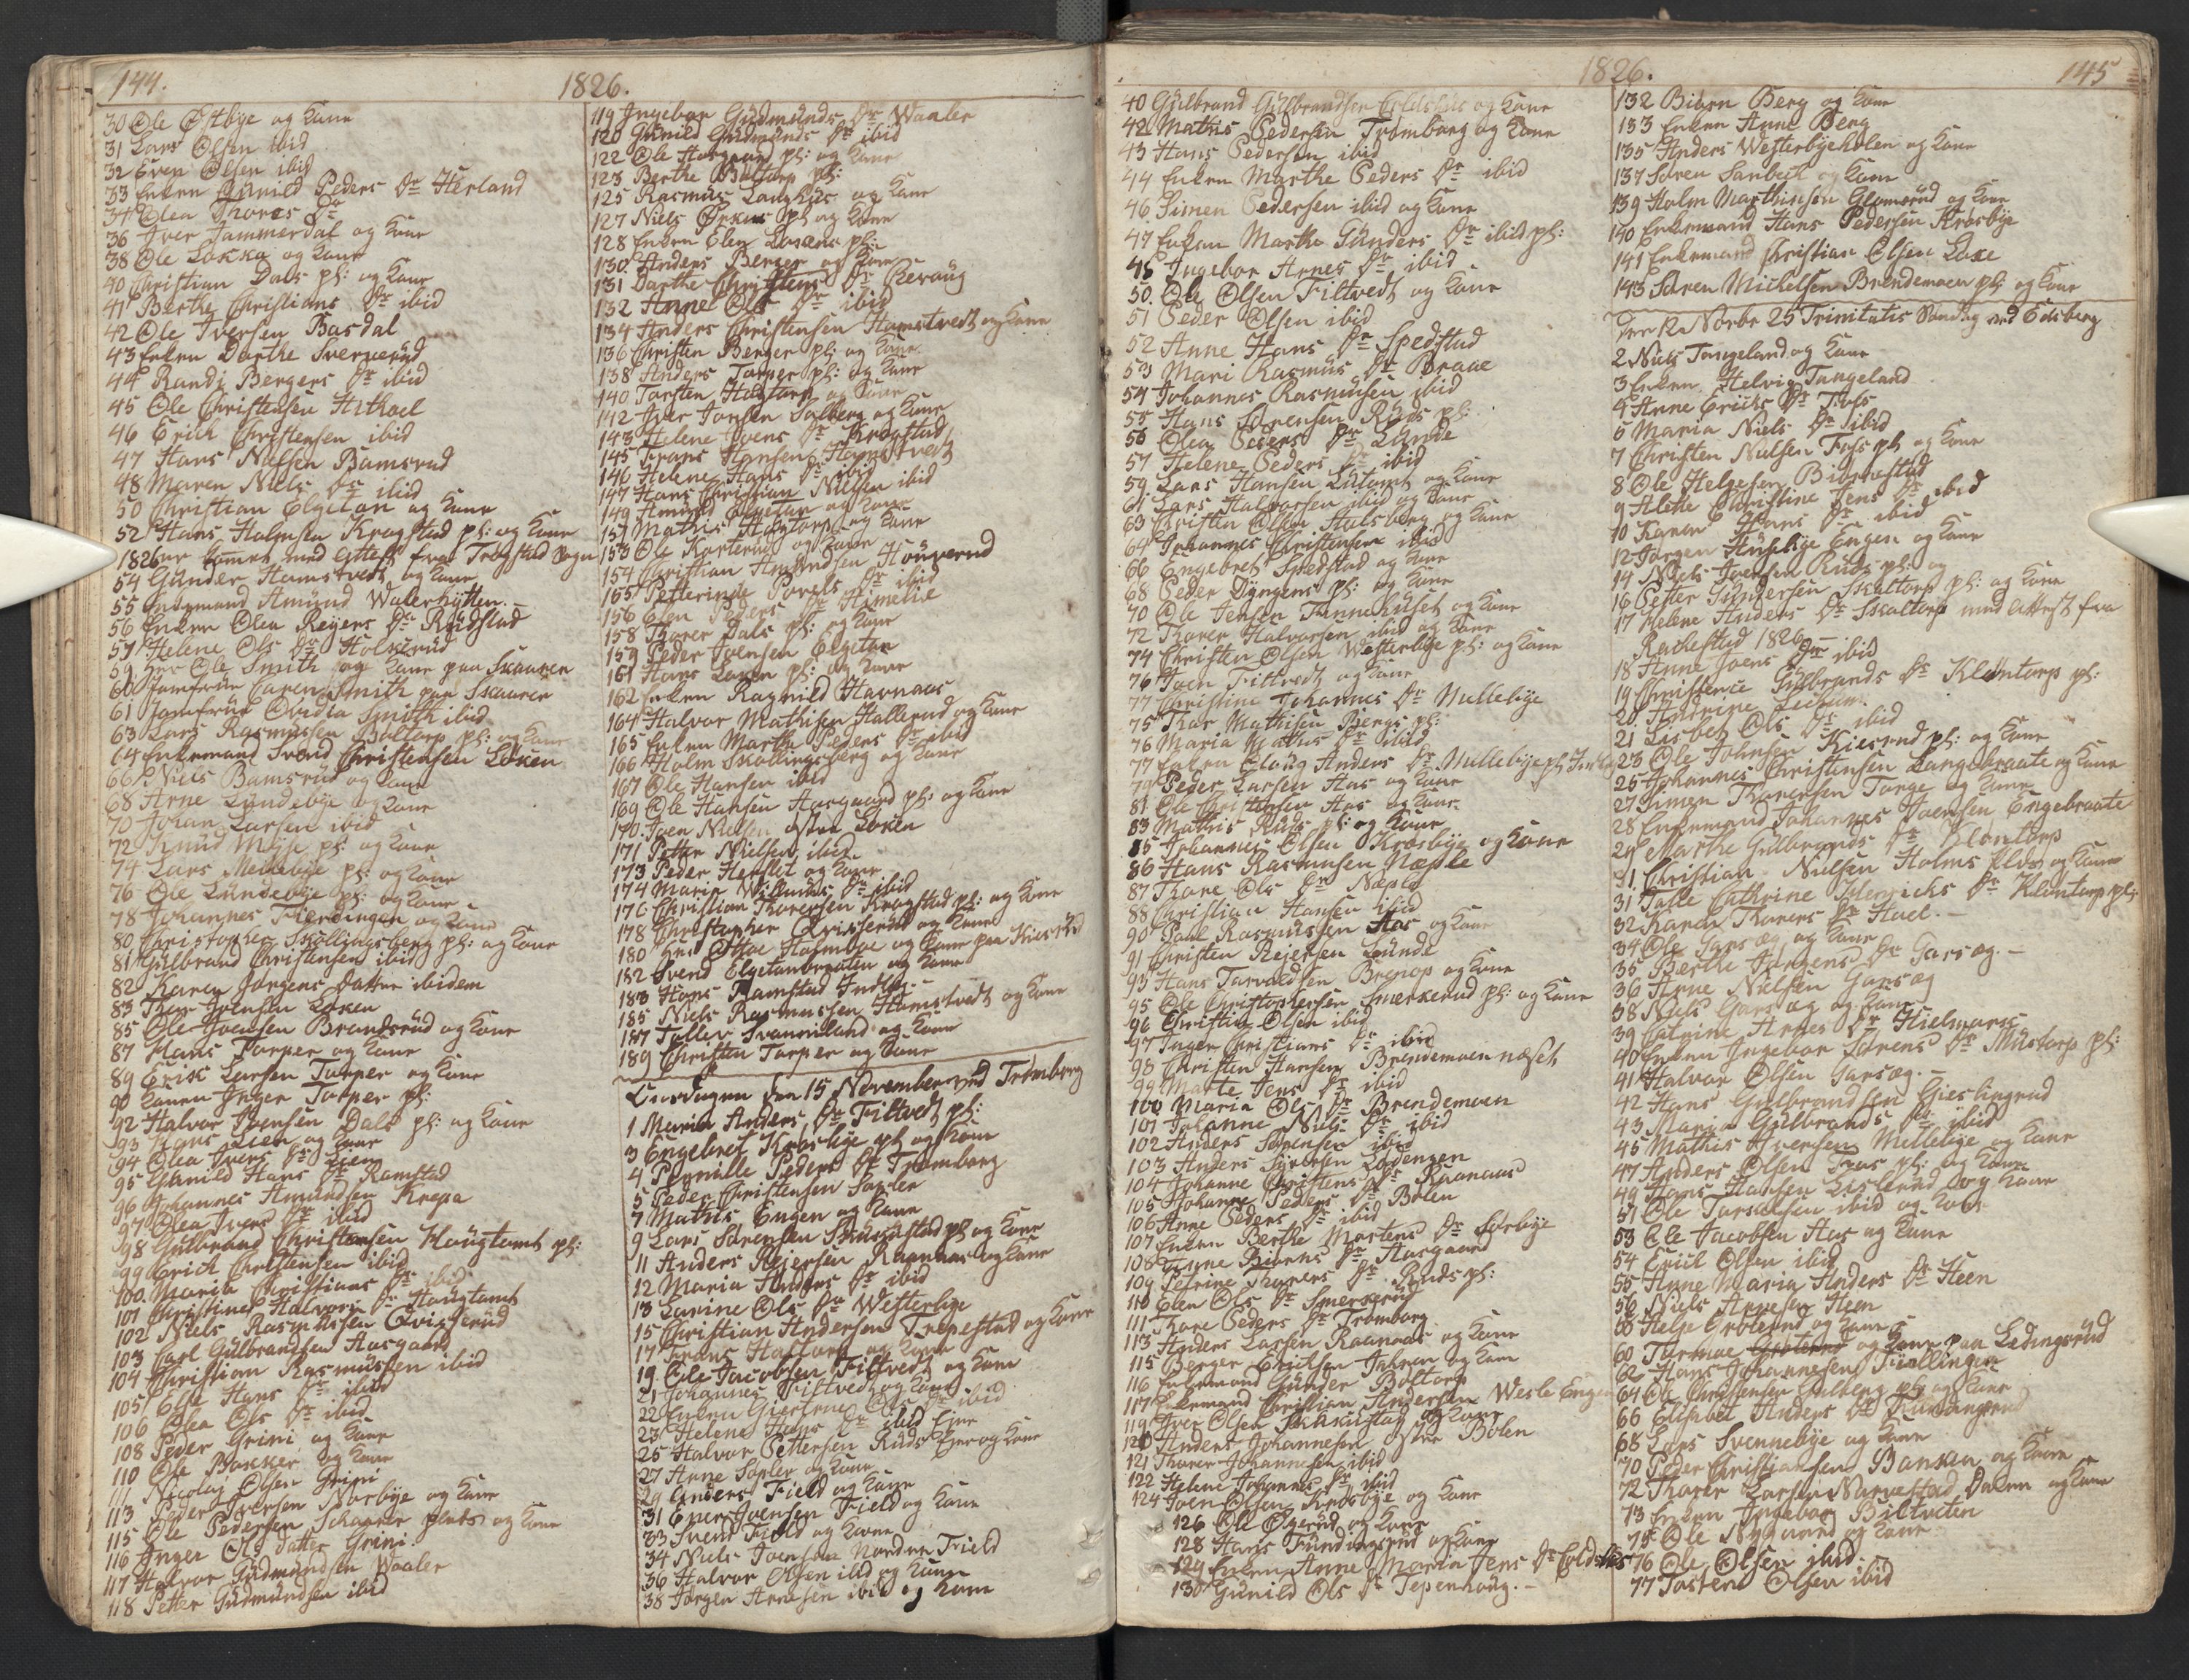 144.
1826.
30 Ole Østbye og Kone
31 Lars Olsen ibid
32 Even Olsen ibid
33 Enken Gunild Peders Dr Herland
34 Olea Thores Dr
36 Iver Jammerdal og Kone
38 Ole Løkka og Kone
40 Christian Dals pl: og Kone
41 Berthe Christians Dr ibid
42 Ole Iversen Basdal
43 Enken Dorthe Sververud
44 Randi Bergers Dr ibid
45 Ole Christensen Hithoel
46 Erich Christensen ibid
47 Hans Nilsen Bamsrud
48 Maren Niels Dr ibid
50 Christian Elgetan og Kone
52 Hans Holmsen Kragstad pl: og Kone
1826 er kommet med Attest fra Trøgstad Sogn
54 Gunder Hamstvedt og Kone
55 Amund Walerhytten.
56 Enken Olea Reyers Dr Rudstad
57 Helene Ols Dr Holkerud
59 Herr Ole Smith og Kone paa Skaarer
60 Jomfrue Caren Smith paa Skaarer
61 Jomfrue Ovidia Smith ibid
63 Lars Rasmussen Boltorp pl: og Kone
64 Enkemand Svend Christensen Løken
66 Niels Bamsrud og Kone
68 Arne Lundebye og Kone
70 Johan Larsen ibid
72 Knud Mysse pl: og Kone
74 Lars Mellebye pl: og Kone
76 Ole Lundebye pl: og Kone
78 Johannes Fierdingen og Kone
80 Christopher Skøllingsberg pl: og Kone
81 Gulbrand Christensen ibid
82 Karen Jørgens Datter ibidem
83 Iver Joensen Løken
85 Ole Joensen Brandsrud og Kone
87 Hans Torper og Kone
89 Erik Larsen Torper og Kone
90 Konen Inger Torper pl:
92 Halvor Joensen Dals pl: og Kone
93 Hans Lien og Kone
94 Olea Ivers Dr Lien
95 Gunild Hans Dr Ramstad
96 Johannes Amundsen Krepa
97 Olea Ivers Dr ibid
98 Gulbrand Christensen Haugtomt pl:
99 Erich Christensen ibid
100 Maria Christians Dr ibid
101 Christine Halvors Dr Haugtomt
102 Niels Rasmussen Qvisserud
103 Carl Gulbrandsen Aasgaard
104 Christian Rasmussen ibid
105 Else Hans Dr ibid
106 Olea Ols Dr ibid
108 Peder Grini og Kone
110 Ole Bakker og Kone
111 Nicolay Olsen Grini
113 Peder Iversen Norbye og Kone
115 Ole Pedersen Schaarer plads og Kone
116 Inger Ols Datter Grini
117 Halvor Gudmundsen Waaler
118 Petter Gudmundsen ibid
119 Ingebor Gudmunds Dr Waaler
120 Gunild Gudmunds Dr ibid
122 Ole Aasgaard pl: og Kone
123 Berthe Boltorp pl:
125 Rasmus Langhus og Kone
127 Niels Ørkus pl og Kone
128 Enken Eleg Løkens pl:
130 Anders Berger og Kone
131 Dorthe Christens Dr Beraug
132 Anne Ols Dr ibid
134 Anders Christensen Hamstvedt og Kone
136 Christen Berger pl: og Kone
138 Anders Torper pl: og Kone
140 Torsten Hagtorp og Kone
142 Iver Jonsen Solberg og Kone
143 Helene Joens Dr Kragstad
145 Frans Hansen Hamstvedt
146 Helene Hans Dr ibid
147 Hans Christian Nilsen ibid
149 Amund Elgetan og Kone
151 Mathis Hagtorp og Kone
153 Ole Korterud og Kone
154 Christian Amundsen Hougerud
155 Petterine Povels Dr ibid
156 Elen Peders Dr Himelie
158 Thorer Dals pl: og Kone
159 Peder Joensen Elgetan
161 Hans Løken pl: og Kone
162 Enken Ragnild Havnaas
164 Halvor Mathisen Hallerud og Kone
165 Enken Marthe Peders Dr ibid
166 Holm Skøllingsberg og Kone
167 Ole Hansen ibid
169 Ole Hansen Aasgaard pl: og Kone
170. Joen Nielsen østre Løken
171 Petter Nielsen ibid
173 Peder Herstet og Kone
174 Maria Willums Dr ibid
176 Christian Thoresen Kragstad pl: og Kone
178 Christopher Qvisserud og Kone
180 Herr Ottar Holmboe og Kone paa Kiesrud
182 Svend Elgetanbraaten og Kone
183 Hans Ramstad Indl:
185 Niels Rasmussen Hamstvedt og Kone
187 Tollev Svanniland og Kone
189 Christen Torper og Kone
Onsdagen den 15 November ved Trømborg
1 Maria Anders Dr Filtvedt pl:
3 Engebret Krosbye pl og Kone
4 Pernille Peders Dr Trømborg
5 Peder Christensen Sopler
7 Mathis Engen og Kone
9 Lars Sørensen Skukustad pl og Kone
11 Anders Rejersen Raanaas og Kone
12 Maria Anders Dr ibid
13 Lavine Ols Dr Westerbye
15 Christian Andersen Trepestad og Kone
17 Frans Hafsord og Kone
19 Ole Jacobsen Filtvedt og Kone
21 Johannes Filtvedt og Kone
22 Enken Giertrue Ols Dr ibid
23 Helene Hans Dr ibid Eier
25 Halvor Pettersen Ruds Eier og Kone
27 Arne Sopler og Kone
29 Anders Field og Kone
31 Ener Joensen Field og Kone
33 Svend Field og Kone
34 Niels Joensen Nordre Field
36 Halvor Olsen ibid og Kone
38 Jørgen Arnesen ibid og Kone
1826.
145
40 Gulbrand Gulbrandsen Coldshus og Kone
42 Mathis Pedersen Trømborg og Kone
43 Hans Pedersen ibid
44 Enken Marthe Peders Dr ibid
46 Simen Pedersen ibid og Kone
47 Enken Marthe Gunders Dr ibid pl:
48 Ingebor Arnes Dr ibid
50. Ole Olsen Filtvedt og Kone
51 Peder Olsen ibid
52 Anne Hans Dr Spedstad
53 Mari Rasmus Dr Braae
54 Johannes Rasmussen ibid
55 Hans Sørensen Ruds pl:
56 Olea Peders Dr Lunde
57 Helene Peders Dr ibid
59 Lars Hansen Lutomt og Kone
61 Lars Halvorsen ibid og Kone
63 Christen Olsen Hulsberg og Kone
64 Johannes Christensen ibid
66 Engebret Spedstad og Kone
68 Peder Dyngens pl: og Kone
70 Ole Jensen Thunehuset og Kone
72 Thorer Halvorsen ibid og Kone
74 Christen Olsen Westerbye pl: og Kone
76 Joen Filtvedt og Kone
77 Christine Johannes Dr Nullebye
75 Thor Mathisen Bergs pl:
76 Maria Mathis Dr ibid
77 Enken Elaug Anders Dr Nullebye pl:
79 Peder Larsen Aas og Kone
81 Ole Christensen Aas og Kone
83 Mathis Ruds pl: og Kone
85 Johannes Olsen Krosbye og Kone
86 Hans Rasmussen Næple
87 Thore Ols Dr Næple
88 Christian Hansen ibid
90 Paul Rasmussen Aas og Kone
91 Christen Rejersen Lunde
93 Hans Torvaldsen Brenop og Kone
95 Ole Christophersen Smerkerud pl: og Kone
96 Christian Olsen ibid
97 Inger Christians Dr ibid
98 Christen Hansen Brendemoen næset
99 Marte Jens Dr ibid
100 Maria Ols Dr Brendemoen
101 Johanne Niels Dr ibid
102 Anders Sørensen ibid
103 Anders Syversen Lødengen
104 Johanne Christens Dr Raanaas
105 Johanne Peders Dr Bolen
106 Anne Peders Dr ibid
107 Enken Berthe Mortens Dr Sørbye
108 Anne Biørns Dr Aasgaard
109 Petrine Thorers Dr Ruds pl:
110 Elen Ols Dr Smerkerud
111 Kare Peders Dr Trømborg
113 Anders Larsen Raanaas og Kone
115 Berger Erichsen Jahren og Kone
116 Enkemand Gunder Boltorp
117 Enkemand Christian Andersen Wesle Engen
119 Iver Olsen Skukustad og Kone
120 Anders Johannesen østre Bolen
121 Thorer Johannesen ibid
122 Helene Johannes Dr ibid
124 Joen Olsen Krosbye og Kone
126 Ole Øgerud og Kone
128 Hans Fundingsrud og Kone
129 Enken Anne Maria Jens Dr Coldshus
130 Gunild Ols Dr Tepenhaug.
132 Biørn Berg og Kone
133 Enken Anne Berg
135 Anders Westerbyeholen og Kone
137 Søren Sanbech og Kone
139 Holm Marthinsen Glomsrud og Kone
140 Enkemand Hans Pedersen Krosbye
141 Enkemand Christian Olsen Loxe
143 Søren Michelsen Brendemoen pl: og Kone
Novbr 25 Trinitatis Søndag ved Edsberg
2 Niels Tangeland og Kone
3 Enken Helvig Tangeland
4 Anne Erichs Dr Foss
5 Maria Niels Dr ibid
7 Christen Nielsen Foss pl og Kone
8 Ole Helgesen Biørnestad
9 Alethe Christine Jens Dr ibid
10 Karen Hans Dr ibid
12 Jørgen Husebye Engen og Kone
14 Niels Joensen Ruds pl: og
16 Petter Gundersen Skaltorp pl: og Kone
17 Helene Anders Dr Skaltorp med Attest fra
Rachestad 1826
18 Anne Joens Dr ibid
19 Christence Gulbrands Dr Klontorp pl:
20. Andrine Lechum.
21 Lisbet Ols Dr ibid
23 Ole Johnsen Kiesrud pl: og Kone
25 Johannes Christensen Langebraate og Kone
27 Simen Thoresen Torge og Kone
28 Enkemand Johannes Joensen Engebraate
29 Marthe Gulbrands Dr Klontorp
31. Christian Nielsen Holms pl: og Kone
31 Tolle Cathrine Henrichs Dr Klontorp pl:
32 Karen Thorers Dr Hael.
34 Ole Garsæg og Kone
35 Berthe Jørgens Dr Garsæg.
36 Arne Nielsen Garsæg
38 Niels Garsæg og Kone
39 Catrine Arnes Dr Hielmark
40 Enken Ingebor Sørens Dr Mustorp pl:
41 Halvor Olsen Garsæg.
42 Hans Gulbrandsen Gieslingrud
43 Maria Gulbrands Dr ibid
45 Mathis Iversen Mellebye og Kone
47 Anders Olsen Foss pl: og Kone
49 Hans Hansen Lislerud og Kone
51 Ole Torsælsen ibid og Kone
53 Ole Jacobsen Aas og Kone
54 Erich Olsen ibid
55 Anne Maria Anders Dr Heen
56 Niels Arnesen Heen
58 Helje Groterud og Kone
60 Tormoe og Kone paa Ledingsrud
62 Hans Johannesen Tiællingen
64 Ole Christensen Solberg pl: og Kone
66 Elisabet Anders Dr
68 Lars Svennebye og Kone
70 Peder Christiansen Banken og Kone
72 Thorer Larsen Narvestad Dalen og Kone
73 Enken Ingebor Biltveten
75 Ole Nygaard og Kone
76 Ole Olsen ibid
77 Tosten Olsen ibid